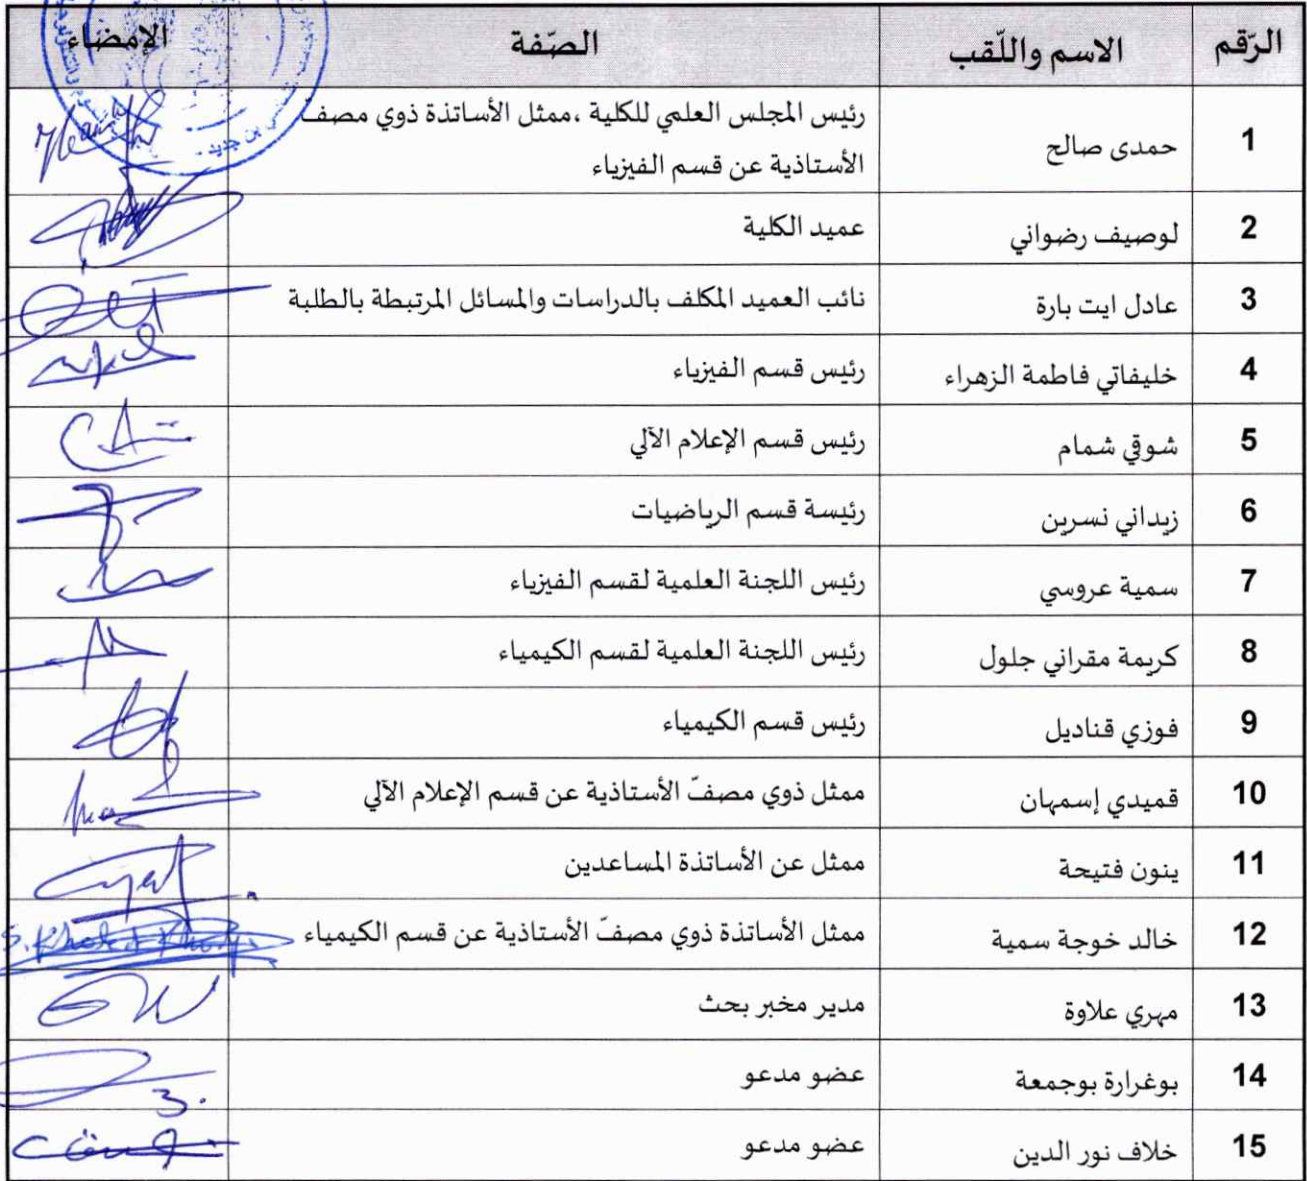 الرّقم الاسم واللّقب الصّفة الإمضاء
1 حمدى صالح رئيس المجلس العلمي للكلية ،ممثل الأساتذة ذوي مصف
الأستاذية عن قسم الفيزياء
2 لوصيف رضواني عميد الكلية
3 عادل ايت بارة نائب العميد المكلف بالدراسات والمسائل المرتبطة بالطلبة
4 خليفاتي فاطمة الزهراء رئيس قسم الفيزياء
5 شوقي شمام رئيس قسم الإعلام الآلي
6 زيداني نسرين رئيسة قسم الرياضيات
7 سمية عروسي رئيس اللجنة العلمية لقسم الفيزياء
8 كريمة مقراني جلول رئيس اللجنة العلمية لقسم الكيمياء
9 فوزي قناديل رئيس قسم الكيمياء
10 قميدي إسمهان ممثل ذوي مصفّ الأستاذية عن قسم الإعلام الآلي
11 ينون فتيحة ممثل عن الأساتذة المساعدين
12 خالد خوجة سمية ممثل الأساتذة ذوي مصفّ الأستاذية عن قسم الكيمياء
13 مهري علاوة مدير مخبر بحث
14 بوغرارة بوجمعة عضو مدعو
15 خلاف نور الدين عضو مدعو